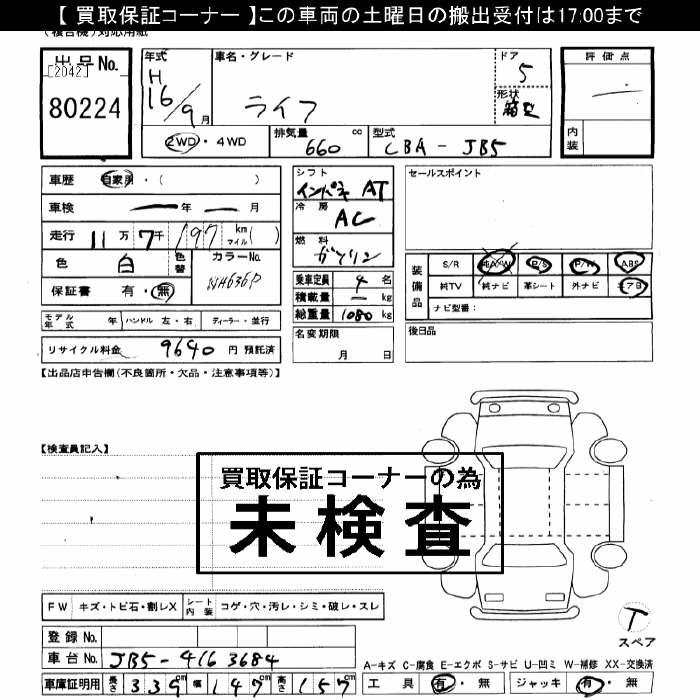 【 買取保証コーナー 】この車両の土曜日の搬出受付は17:00まで
(複合機)対応用紙
出品No.
[2042]
80224
年式
H
16/9月
車名・グレード
ライフ
ドア
5
形状
箱型
評価点
内装
2WD・4WD
排気量
660 cc
型式
CBA - JB5
車歴 自家用・( )
車検 ー年 ー月
走行 11万 7千 197 km マイル( )
色 白 色替
カラーNo.
NH636P
保証書 有・無
モデル年式 年 ハンドル 左・右 ディーラー・並行
リサイクル料金 9640 円 預託済
シフト
インパネ AT
冷房
AC
燃料
ガソリン
乗車定員 4 名
積載量 ー kg
総重量 1080 kg
名変期限
月 日
セールスポイント
装備品
S/R 純AW P/S P/W ABS
純TV 純ナビ 革シート 外ナビ エアB
ナビ型番:
後日品
【出品店申告欄(不良箇所・欠品・注意事項等)】
【検査員記入】
買取保証コーナーの為
未検査
FW キズ・トビ石・割レX シート内装 コゲ・穴・汚レ・シミ・破レ・スレ
登録No.
車台No. JB5-4163684
車庫証明用 長さ 339cm 幅 147cm 高さ 157cm
T
スペア
A-キズ C-腐食 E-エクボ S-サビ U-凹ミ W-補修 XX-交換済
工具 有・無 ジャッキ 有・無